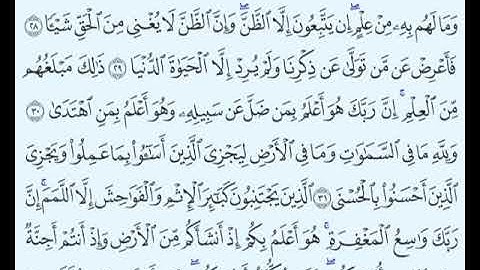 وَمَا لَهُم بِهِۦ مِنْ عِلْمٍ ۖ إِن يَتَّبِعُونَ إِلَّا ٱلظَّنَّ ۖ وَإِنَّ ٱلظَّنَّ لَا يُغْنِى مِنَ ٱلْحَقِّ شَيْـًٔا ٢٨
فَأَعْرِضْ عَن مَّن تَوَلَّىٰ عَن ذِكْرِنَا وَلَمْ يُرِدْ إِلَّا ٱلْحَيَوٰةَ ٱلدُّنْيَا ٢٩ ذَٰلِكَ مَبْلَغُهُم
مِّنَ ٱلْعِلْمِ ۚ إِنَّ رَبَّكَ هُوَ أَعْلَمُ بِمَن ضَلَّ عَن سَبِيلِهِۦ وَهُوَ أَعْلَمُ بِمَنِ ٱهْتَدَىٰ ٣٠
وَلِلَّهِ مَا فِى ٱلسَّمَٰوَٰتِ وَمَا فِى ٱلْأَرْضِ لِيَجْزِىَ ٱلَّذِينَ أَسَٰٓـُٔوا۟ بِمَا عَمِلُوا۟ وَيَجْزِىَ
ٱلَّذِينَ أَحْسَنُوا۟ بِٱلْحُسْنَى ٣١ ٱلَّذِينَ يَجْتَنِبُونَ كَبَٰٓئِرَ ٱلْإِثْمِ وَٱلْفَوَٰحِشَ إِلَّا ٱللَّمَمَ ۚ إِنَّ
رَبَّكَ وَٰسِعُ ٱلْمَغْفِرَةِ ۚ هُوَ أَعْلَمُ بِكُمْ إِذْ أَنشَأَكُم مِّنَ ٱلْأَرْضِ وَإِذْ أَنتُمْ أَجِنَّةٌ